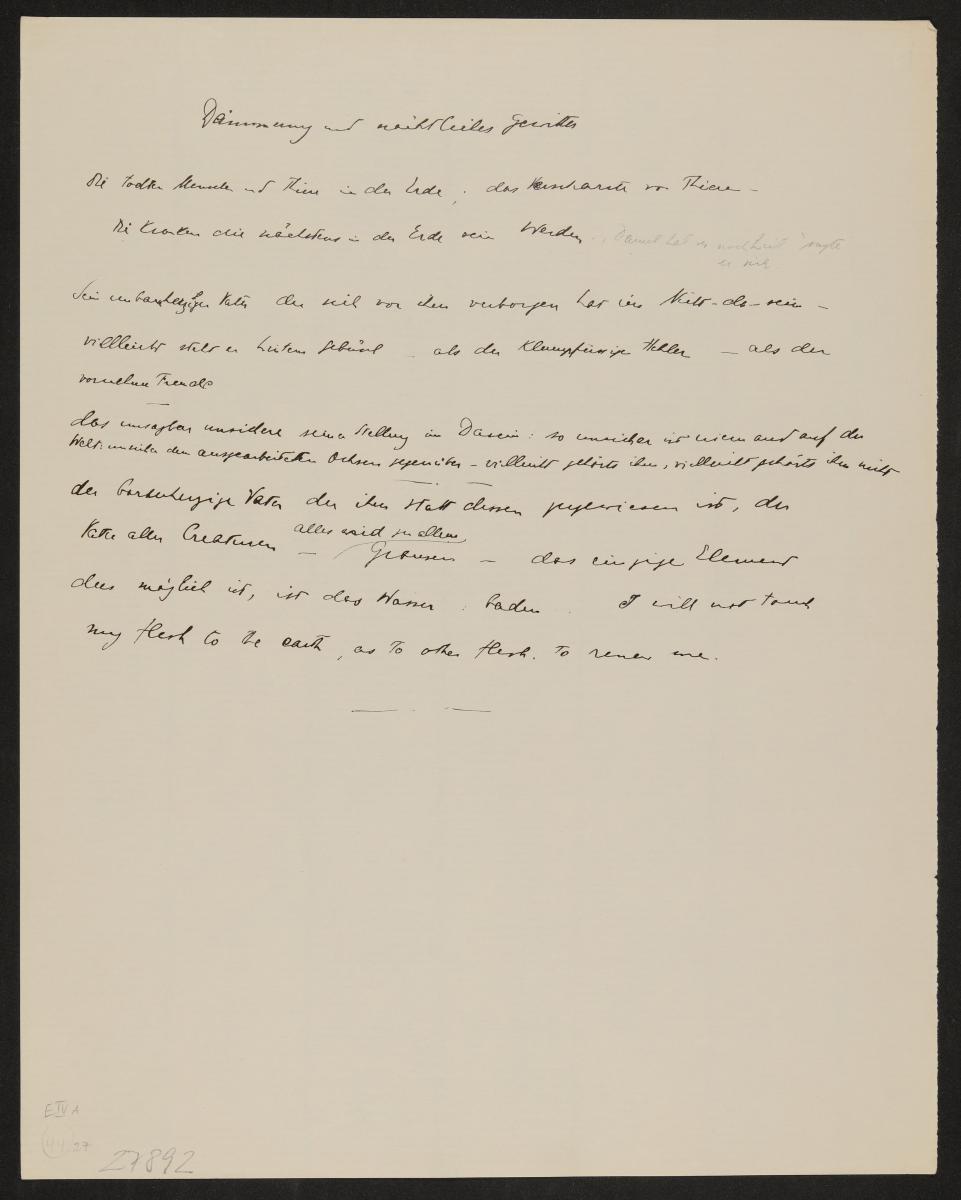 Dämmerung und nächtliches Gewitter
die todten Menschen und Thiere in der Erde, das Verscharrte von Thieren –
Die Kranken die nächstens in der Erde sein werden. Damit hat es noch Zeit" sagte
er sich
Sein unbarmherziger Vater der sich vor ihm verborgen hat ins Nicht-da-sein –
vielleicht steht er hinterm Gebüsch – als der Klumpfüssige Hehler – als der
vornehme Fremde
das unsagbar unsichere seiner Stellung im Dasein: so unsicher ist niemand auf der
Welt: unsicher dem ausgearbeiteten Ochsen gegenüber – vielleicht gehörts ihm, vielleicht gehörts ihm nicht
der barmherzige Vater der ihm statt dessen zugewiesen ist, der
Vater aller Creaturen – alles wird zu allem
Grausen – das einzige Element
dies möglich ist, ist das Wasser: baden. I will not touch
my flesh to the earth, as to other flesh, to renew me.
E IV A
44 27
27892